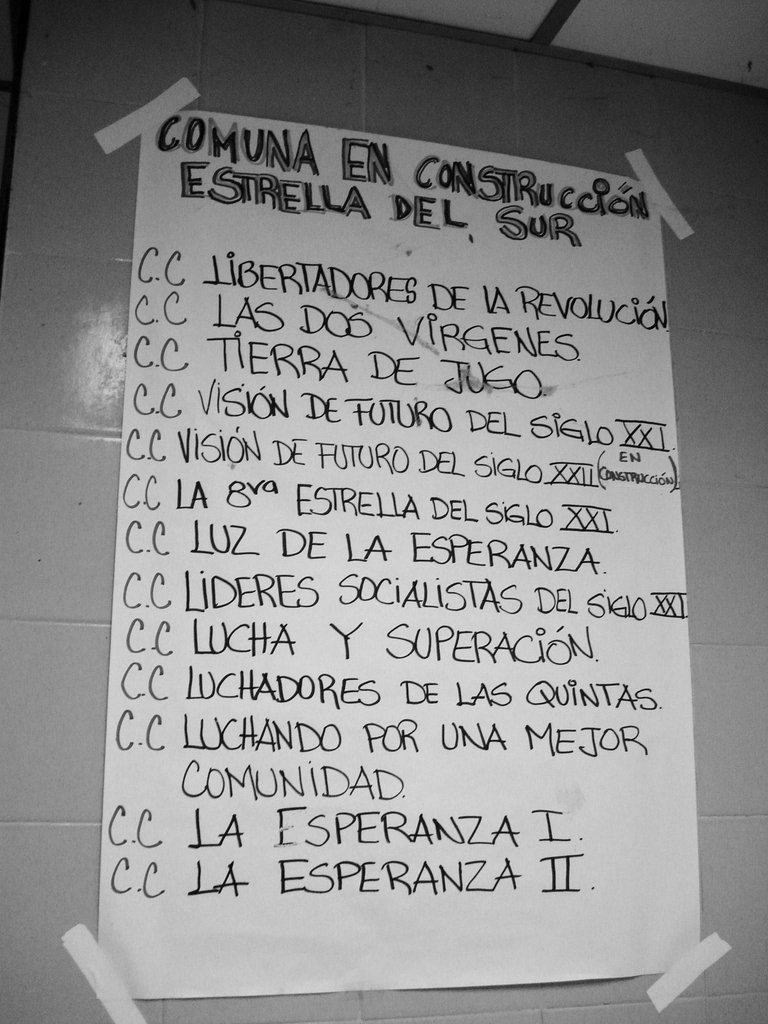 COMUNA EN CONSTRUCCIÓN
ESTRELLA DEL SUR
C.C LIBERTADORES DE LA REVOLUCIÓN
C.C LAS DOS VIRGENES.
C.C TIERRA DE JUGO.
C.C VISIÓN DE FUTURO DEL SIGLO XXI.
C.C VISIÓN DE FUTURO DEL SIGLO XXII (EN CONSTRUCCIÓN)
C.C LA 8va ESTRELLA DEL SIGLO XXI.
C.C LUZ DE LA ESPERANZA.
C.C LIDERES SOCIALISTAS DEL SIGLO XXI
C.C LUCHA Y SUPERACIÓN.
C.C LUCHADORES DE LAS QUINTAS.
C.C LUCHANDO POR UNA MEJOR
COMUNIDAD.
C.C LA ESPERANZA I.
C.C LA ESPERANZA II.